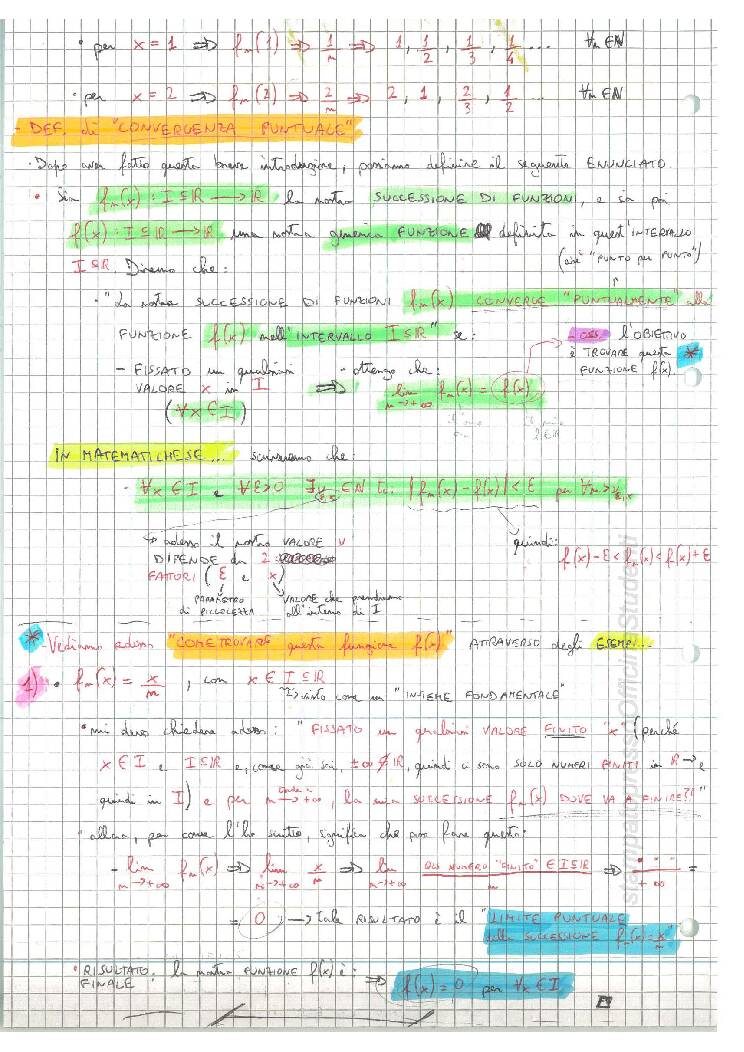 · per x = 1 ⇒ fn(1) ⇒ 1/n ⇒ 1, 1/2, 1/3, 1/4 ... ∀n ∈ ℕ
· per x = 2 ⇒ fn(2) ⇒ 2/n ⇒ 2, 1, 2/3, 1/2 ... ∀n ∈ ℕ
- DEF. di "CONVERGENZA PUNTUALE"
· Dopo aver fatto questa breve introduzione, possiamo definire il seguente ENUNCIATO.
· Sia fn(x) : I ⊆ ℝ → ℝ la nostra SUCCESSIONE DI FUNZIONI, e sia poi
f(x) : I ⊆ ℝ → ℝ una nostra generica FUNZIONE definita in quest'INTERVALLO
I ⊆ ℝ. Diremo che:
(cioè "PUNTO per PUNTO")
· "La nostra SUCCESSIONE DI FUNZIONI fn(x) CONVERGE "PUNTUALMENTE" alla
FUNZIONE f(x) nell'INTERVALLO I ⊆ ℝ" se:
- OSS. l'OBIETTIVO
è TROVARE questa *
FUNZIONE f(x).
- FISSATO un qualsiasi
VALORE x in I
(∀x ∈ I)
⇒
- ottengo che:
lim n→+∞ fn(x) = f(x)
IN MATEMATICHESE... scriveremo che:
- ∀x ∈ I e ∀ε>0 ∃ν ε,x ∈ ℕ t.c. |fn(x) - f(x)| < ε per ∀n > ν ε,x
→ adesso il nostro VALORE ν
DIPENDE da 2
FATTORI (ε e x)
PARAMETRO
di PICCOLEZZA
VALORE che prendiamo
all'interno di I
quindi:
f(x) - ε < fn(x) < f(x) + ε
* Vediamo adesso "COME TROVARE questa funzione f(x)" ATTRAVERSO degli ESEMPI...
1) · fn(x) = x/n , con x ∈ I ⊆ ℝ
visto come un "INSIEME FONDAMENTALE"
· mi devo chiedere adesso: "FISSATO un qualsiasi VALORE FINITO "x" (perché
x ∈ I e I ⊆ ℝ e, come già sai, ±∞ ∉ ℝ, quindi ci sono SOLO NUMERI FINITI in ℝ → e
quindi in I) e per n→+∞, la mia SUCCESSIONE fn(x) DOVE VA A FINIRE?!"
· allora, per come l'ho scritto, significa che posso fare questo:
- lim n→+∞ fn(x) ⇒ lim n→+∞ x/n ⇒ lim n→+∞ NUMERO "FINITO" ∈ I ⊆ ℝ / n ⇒ / +∞ =
= 0 → tale RISULTATO è il "LIMITE PUNTUALE
della SUCCESSIONE fn(x) = x/n"
· RISULTATO FINALE: la nostra FUNZIONE f(x) è: ⇒ f(x) = 0 per ∀x ∈ I
stampato presso Officina Studenti